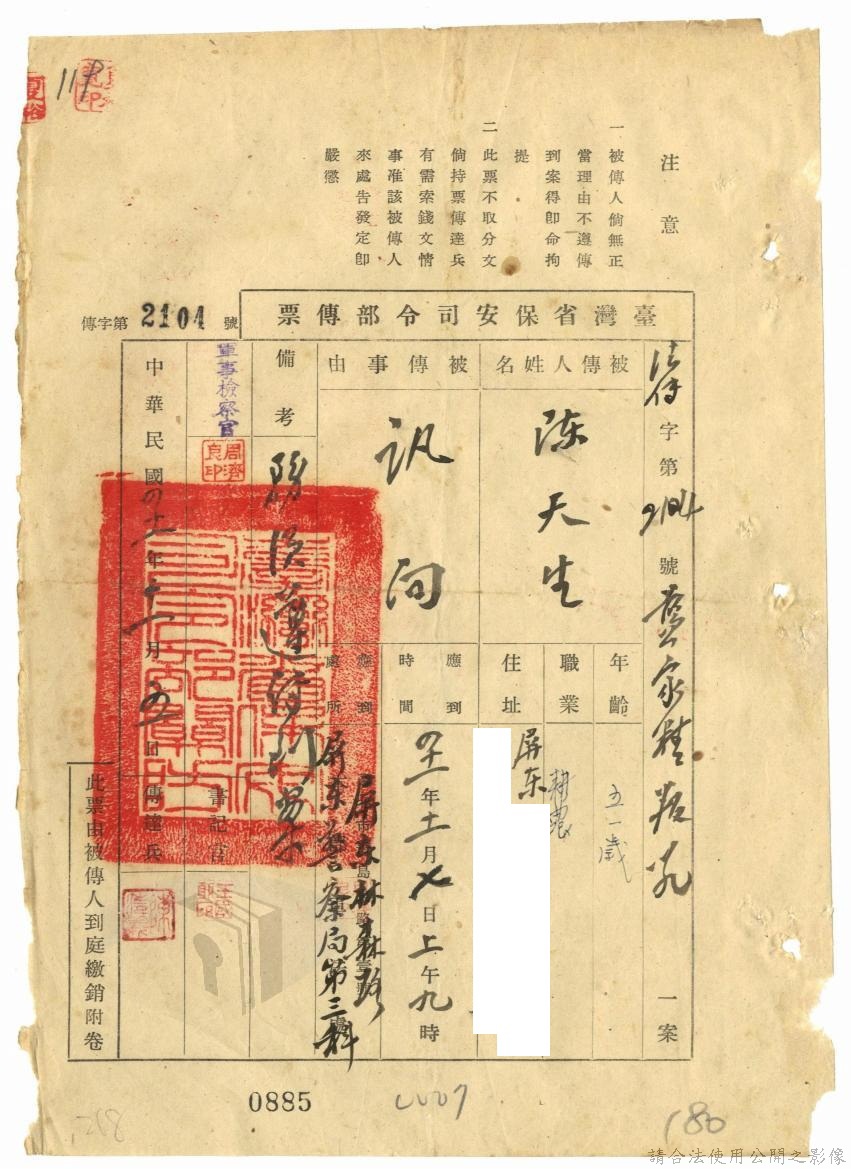 注意
一 被傳人倘無正
當理由不遵傳
到案得卽命拘
提
二 此票不取分文
倘持票傳達兵
有需索錢文情
事准該被傳人
來處告發定卽
嚴懲
臺灣省保安司令部傳票
傳字第2104號
字第2104號
一案
被傳人姓名
陈天生
年齡
五一歲
職業
耕農
住址
屏东
被傳事由
訊问
應到時間
四十一年十一月七日上午九時
應到處所
屏东林森路
屏东警察局第三科
備考
軍事檢察官
周濟良印
書記官
傳達兵
中華民國四十一年十一月五日
此票由被傳人到庭繳銷附卷
119
0885
180
請合法使用公開之影像